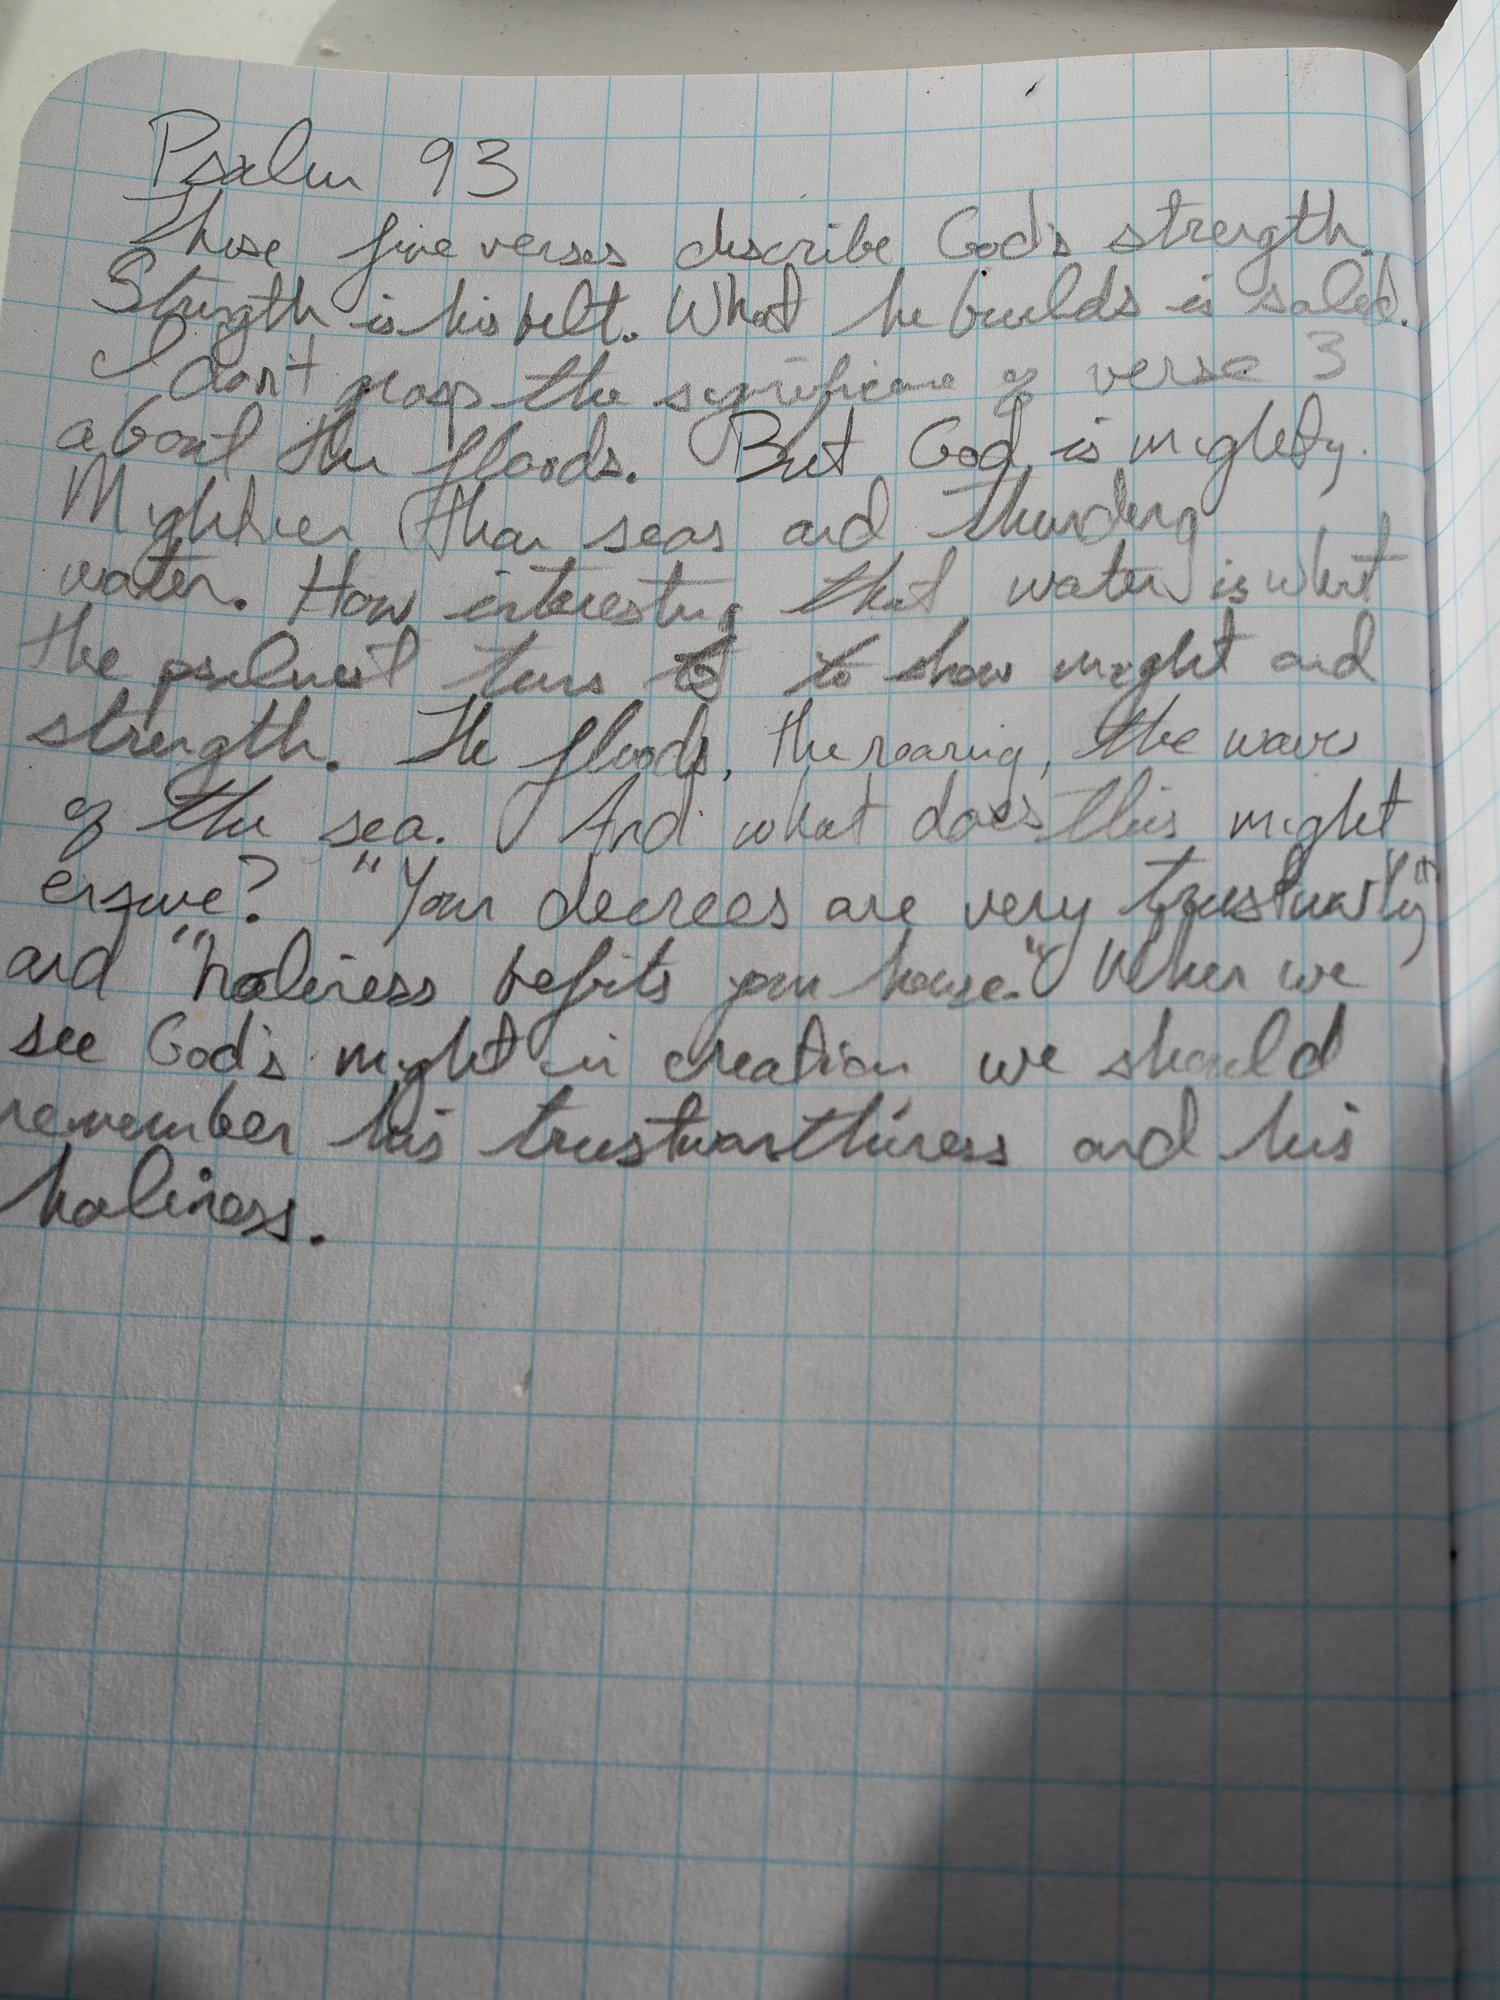 Psalm 93
These five verses describe God's strength.
Strength is his belt. What he builds is solid.
I don't grasp the significance of verse 3
about the floods. But God is mighty.
Mightier than seas and thundering
water. How interesting that water is what
the psalmist turns to to show might and
strength. The floods, the roaring, the waves
of the sea. And what does this might
ensure? "Your decrees are very trustworthy"
and "holiness befits your house." When we
see God's might in creation we should
remember his trustworthiness and his
holiness.